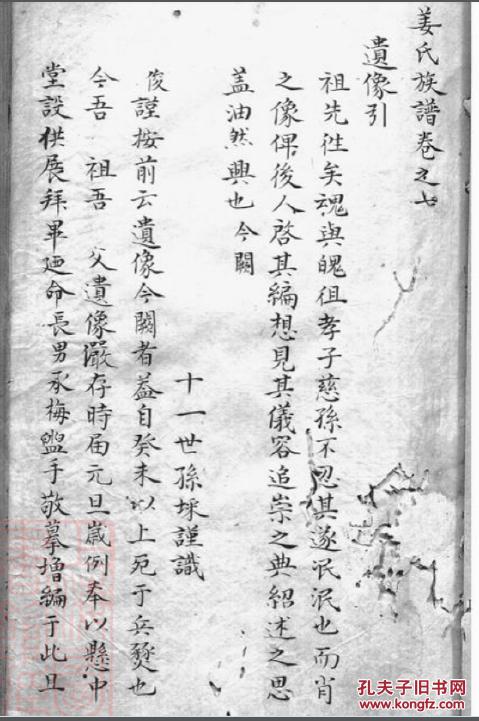 姜氏族譜卷之七
遺像引
祖先徃矣魂與魄徂孝子慈孫不忍其遂泯泯也而肖
之像俾後人啓其編想見其儀容追崇之典紹述之思
盖油然興也今闕
十一世孫埰謹識
俊謹按前云遺像今闕者盖自癸未以上兖于兵燹也
今吾 祖吾 父遺像嚴存時届元旦嵗例奉以懸中
堂設供展拜畢廼命長男承梅盥手敬摹增編于此且
孔夫子旧书网
www.kongfz.com